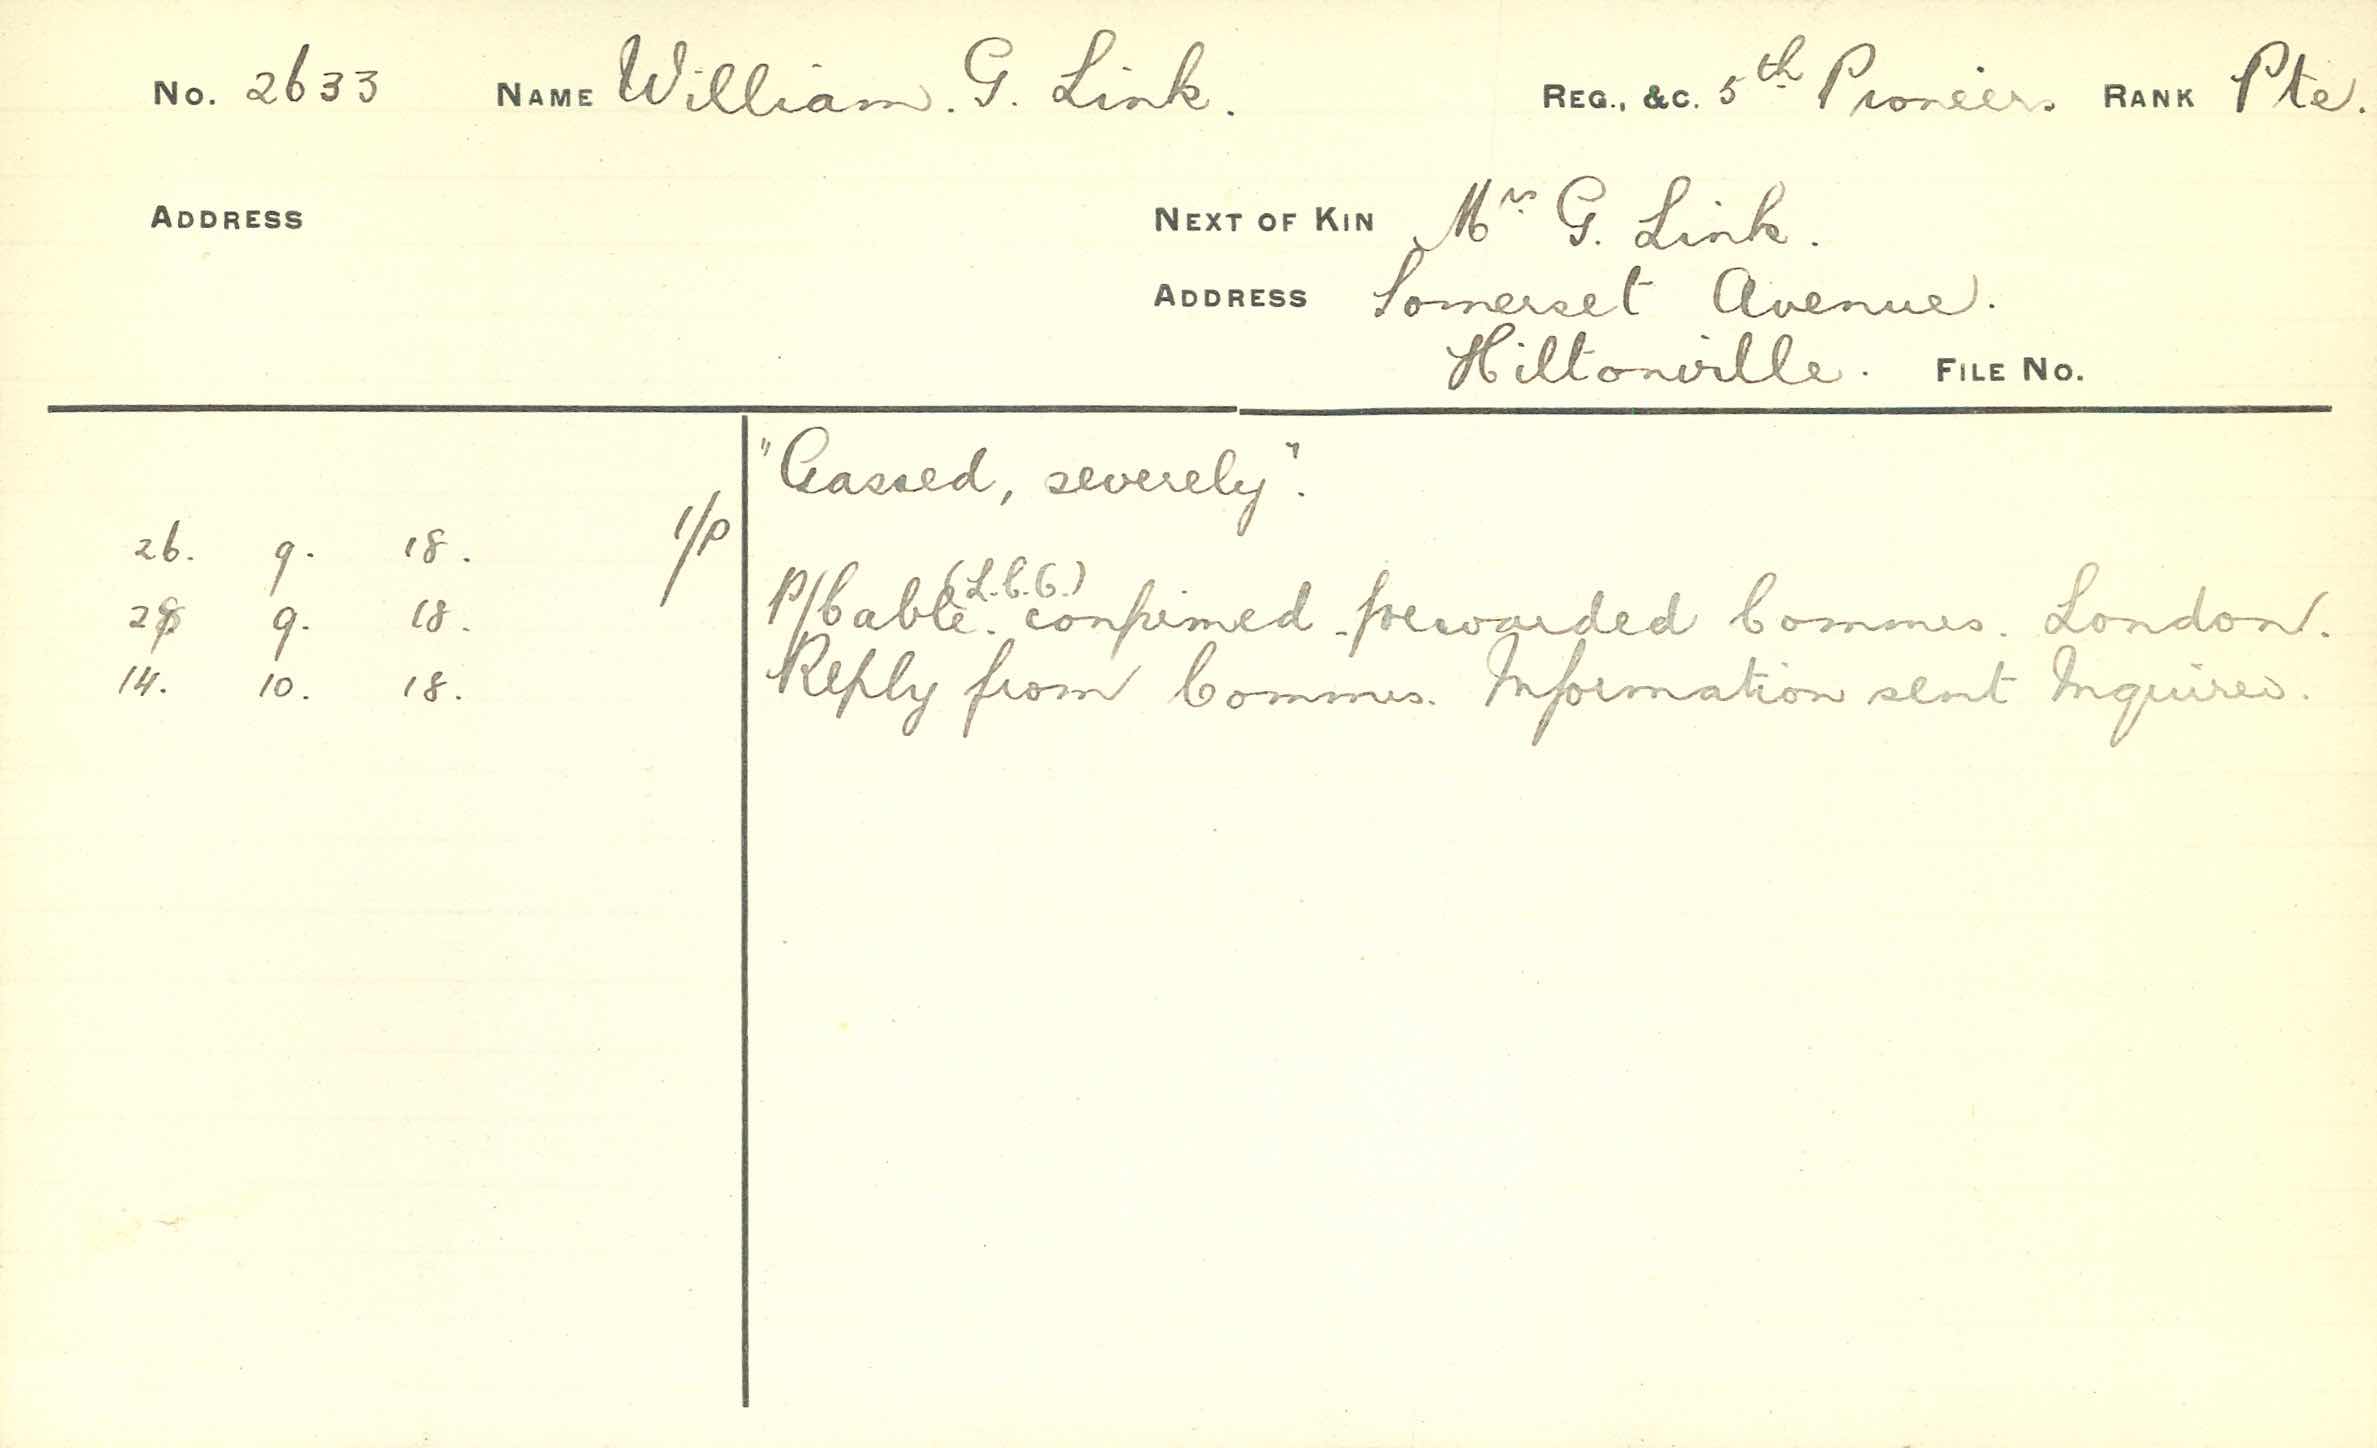 No. 2633 NAME William. G. Link. REG., &C. 5th Pioneers RANK Pte.
ADDRESS NEXT OF KIN Mrs G. Link.
ADDRESS Somerset Avenue.
Hiltonville. FILE No.
"Gassed, severely".
26. 9. 18. 1/P
28 9. 18. P/Cable. (L.C.C.) confirmed forwarded Commrs. London.
14. 10. 18. Reply from Commrs. Information sent Inquirer.